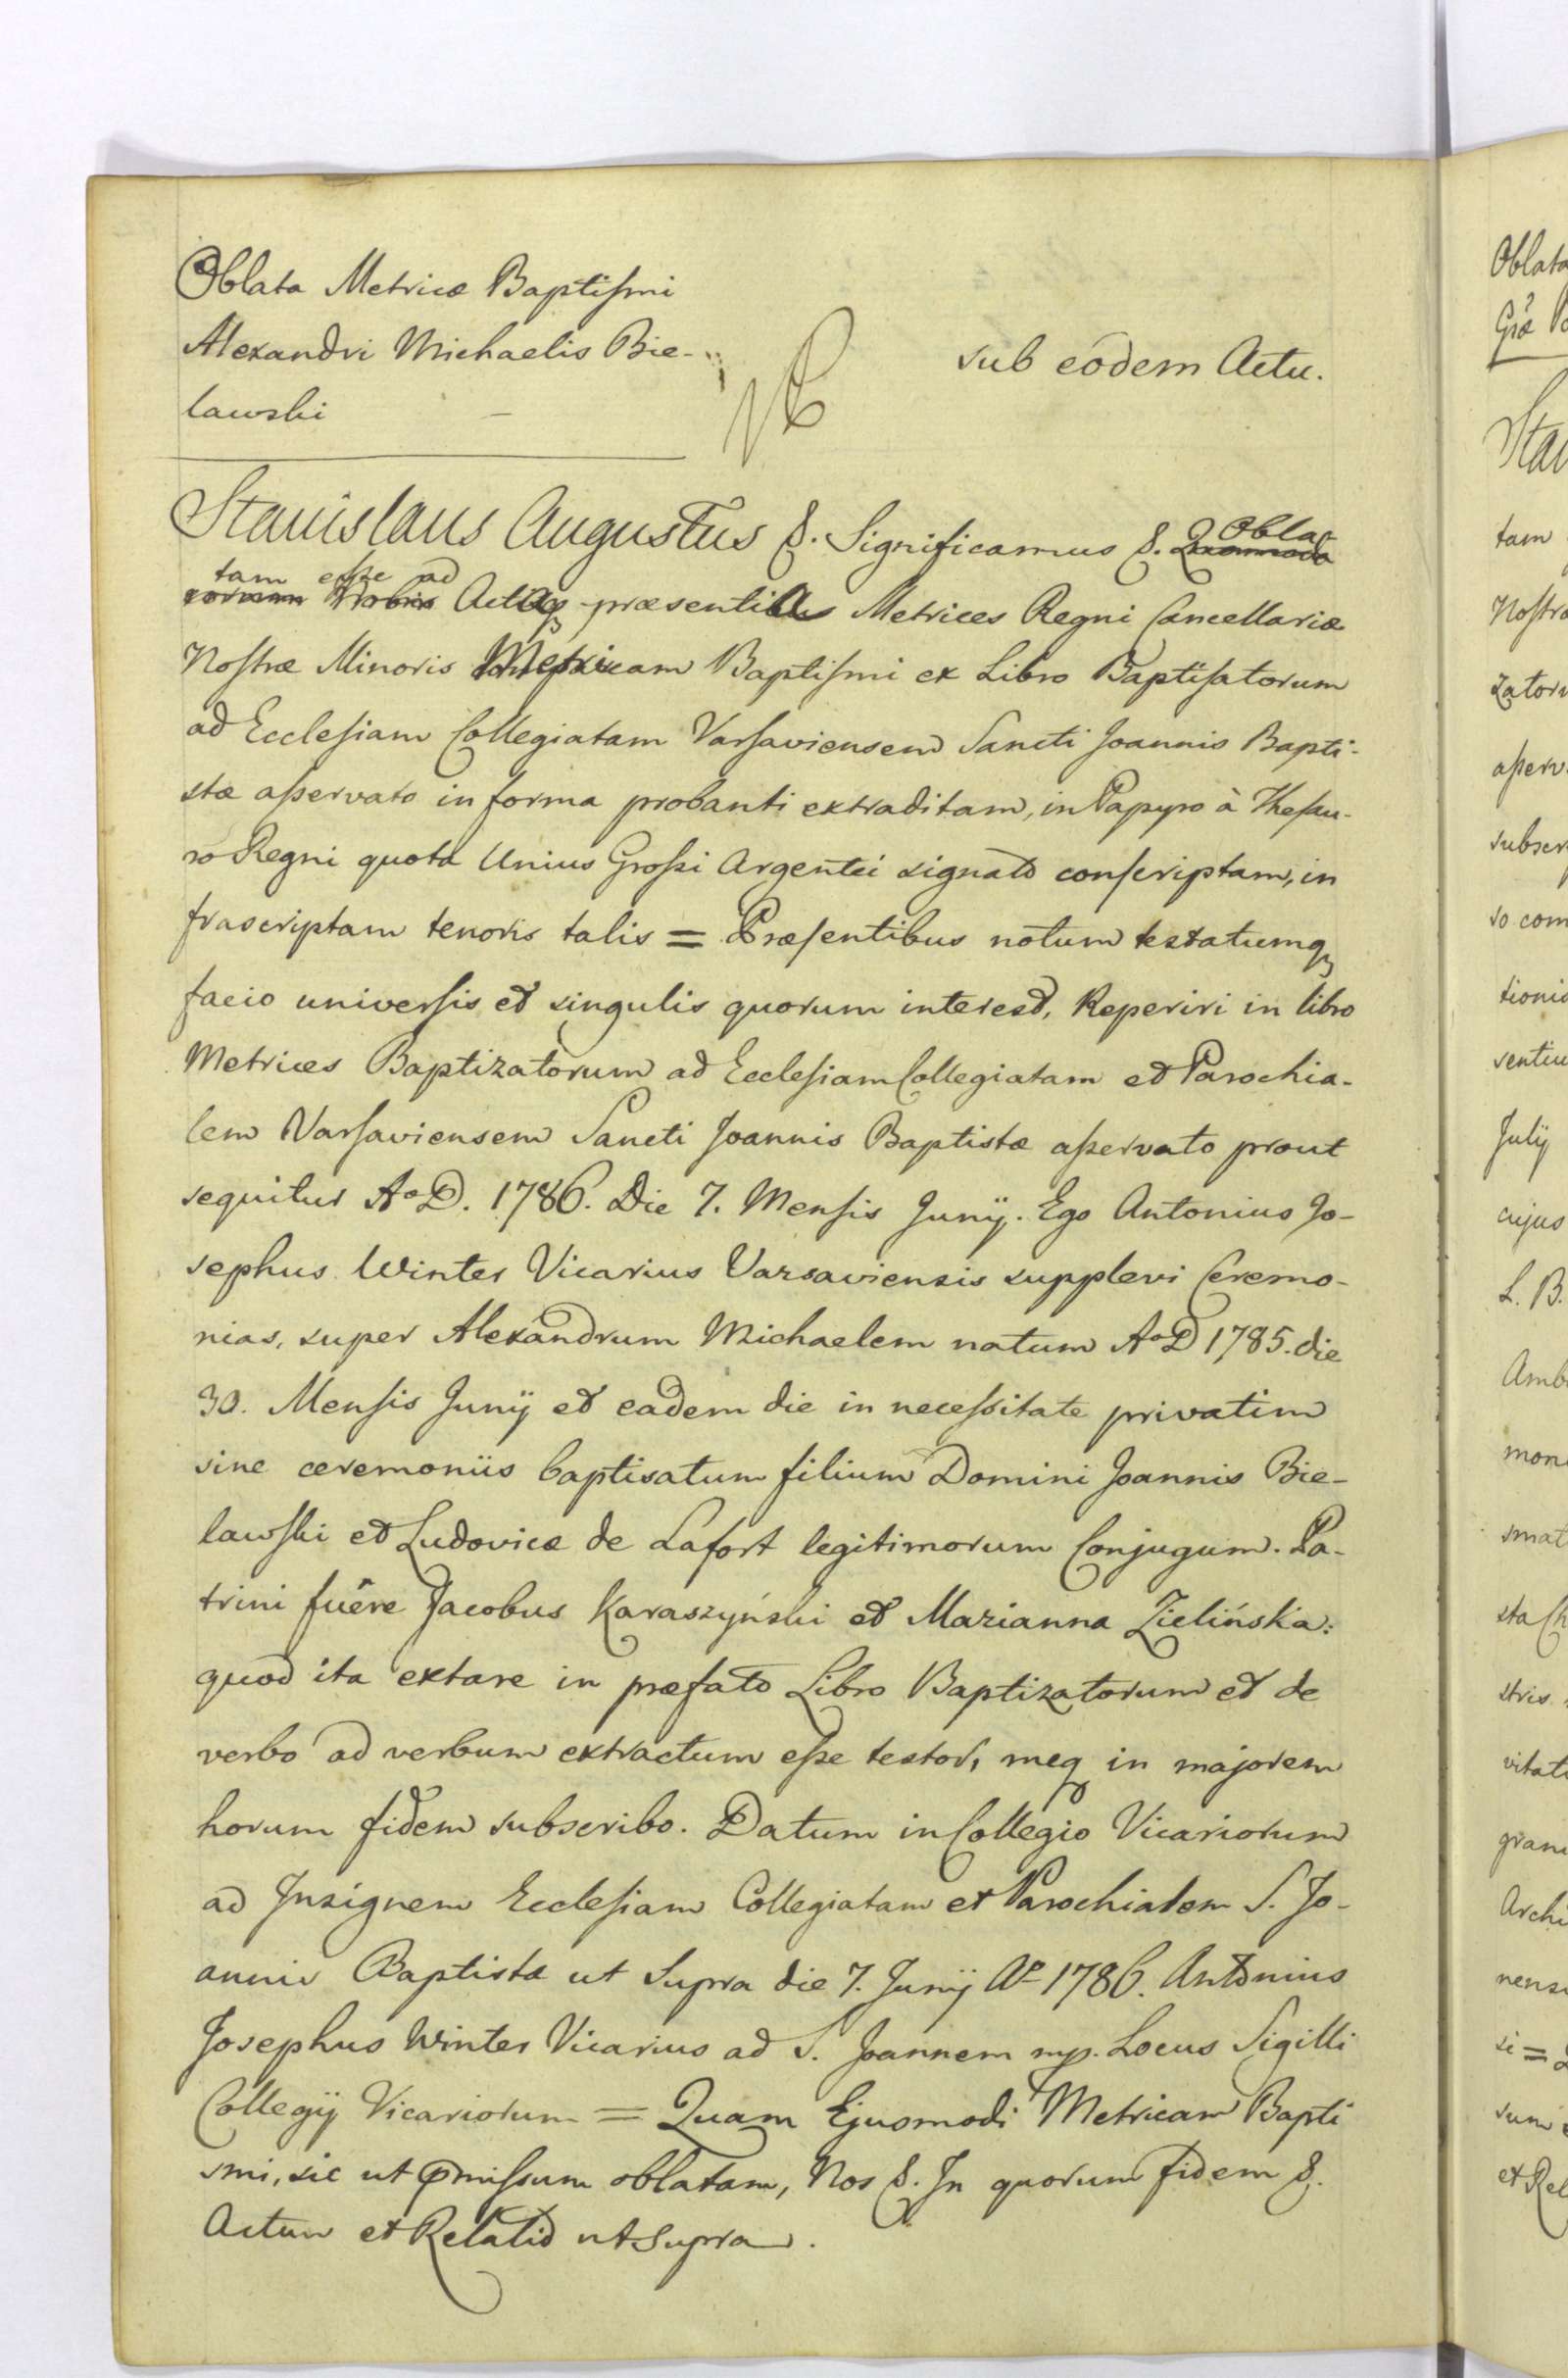 Oblata Metricæ Baptismi
Alexandri Michaelis Bie-
lawski
sub eodem Actu.
Stanislaus Augustus &. Significamus &. Quomodo Obla-
tam esse ad coram Nobis Actaq præsentia Metrices Regni Cancellariæ
Nostræ Minoris Metricam Baptismi ex Libro Baptisatorum
ad Ecclesiam Collegiatam Varsaviensem Sancti Joannis Bapti-
stæ asservato in forma probanti extraditam, in Papyro à Thesau-
ro Regni quota Unius Grossi Argentei signato conscriptam, in
frascriptam tenoris talis = Præsentibus notum testatumq
facio universis et singulis quorum interest, Reperiri in libro
Metrices Baptizatorum ad Ecclesiam Collegiatam et Parochia-
lem Varsaviensem Sancti Joannis Baptistæ asservato prout
sequitur Ao D. 1786. Die 7. Mensis Junÿ. Ego Antonius Jo-
sephus Winter Vicarius Varsaviensis supplevi Ceremo-
nias, super Alexandrum Michaelem natum Ao D 1785. die
30. Mensis Junÿ et eadem die in necessitate privatim
sine ceremoniis baptisatum filium Domini Joannis Bie-
lawski et Ludovicæ de Lafort legitimorum Conjugum. Pa-
trini fuêre Jacobus Karaszyński et Marianna Zielińska:
quod ita extare in præfato Libro Baptizatorum et de
verbo ad verbum extractum esse testor, meq in majorem
horum fidem subscribo. Datum in Collegio Vicariorum
ad Insignem Ecclesiam Collegiatam et Parochialem S. Jo-
annis Baptistæ ut Supra die 7. Junÿ Ao 1786. Antonius
Josephus Winter Vicarius ad S. Joannem mp. Locus Sigilli
Collegÿ Vicariorum = Quam Ejusmodi Metricam Bapti
smi, sic ut pmissum oblatam, Nos &. In quorum fidem &.
Actum et Relatio ut Supra.
Oblata
Græ
Stan
tam
Nostra
zatoru
asserv
subscr
so com
tionis
sentiu
Julÿ
cujus
L. B.
Amb
moni
smat
sta Ch
stris
vitat
gran
Archi
nens
si =
sum
et Rel